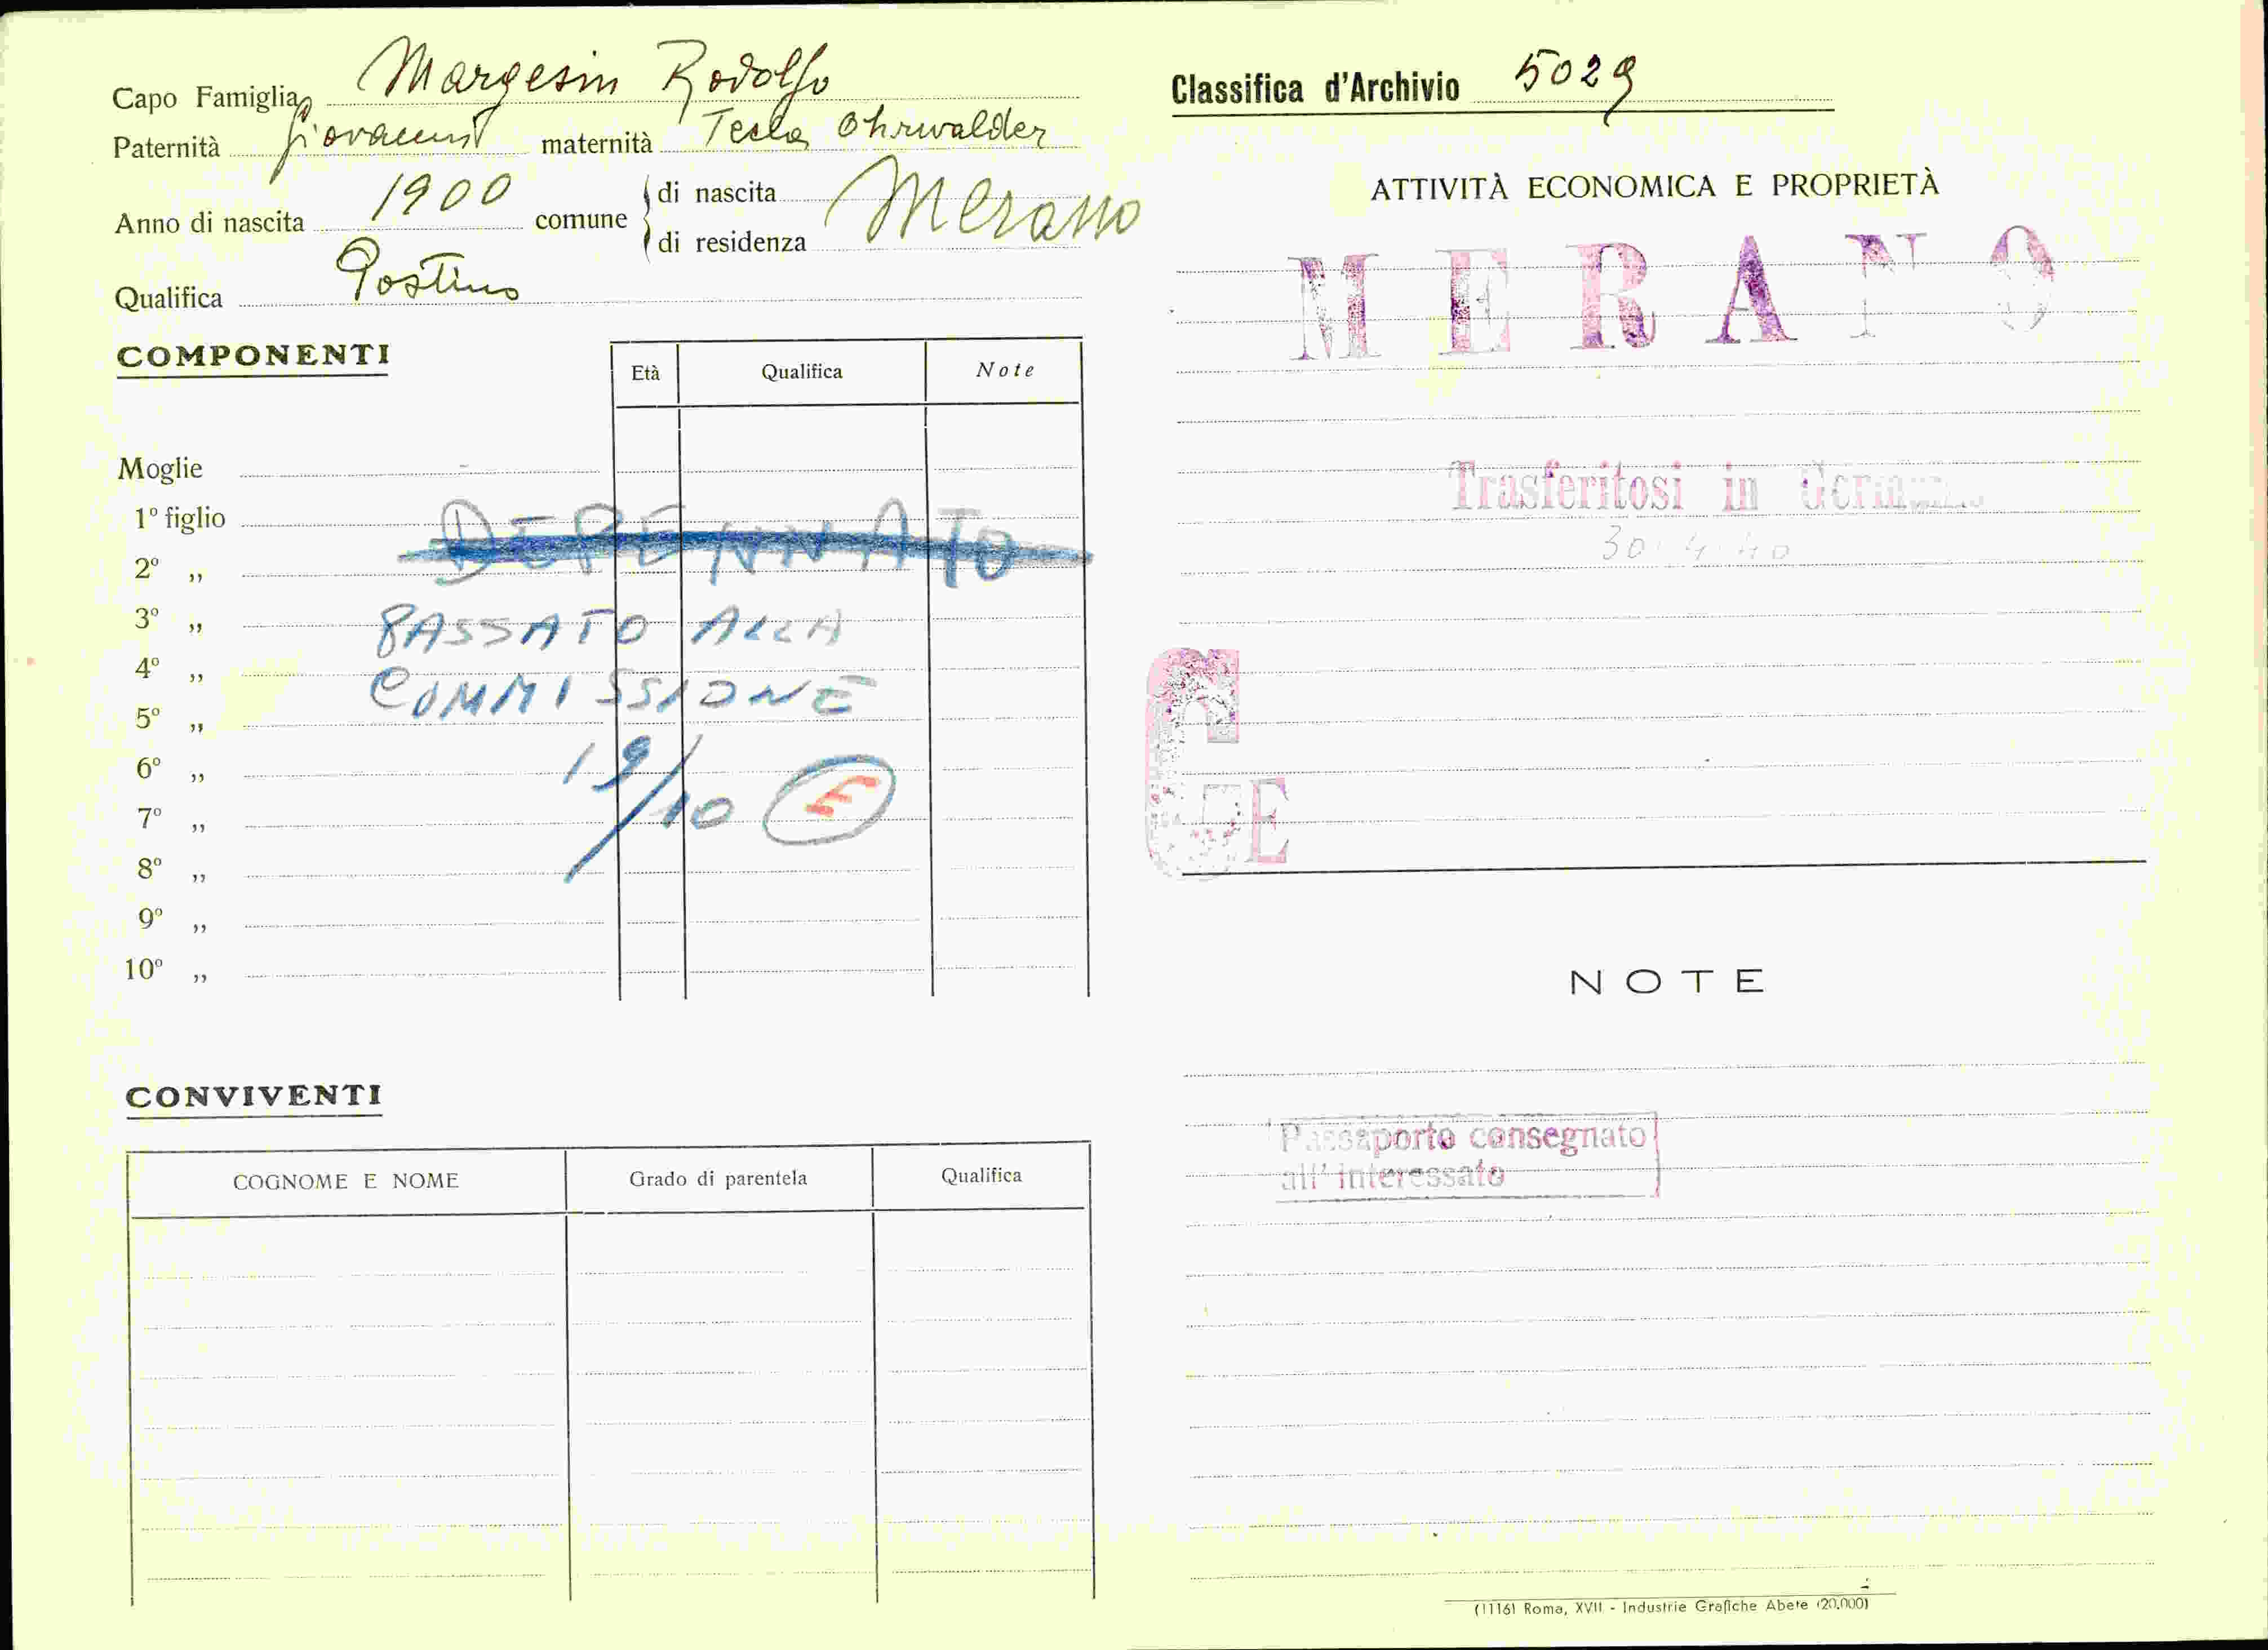 Capo Famiglia Margesin Rodolfo
Paternità Giovanni maternità Tecla Ohrwalder
Anno di nascita 1900 comune di nascita Merano
di residenza
Qualifica Postino
COMPONENTI
Età Qualifica Note
Moglie
1º figlio
DEPENNATO
2º „
3º „ PASSATO ALLA
4º „
5º „ COMMISSIONE
6º „ 19/10 E
7º „
8º „
9º „
10º „
CONVIVENTI
COGNOME E NOME Grado di parentela Qualifica
Classifica d'Archivio 5029
ATTIVITÀ ECONOMICA E PROPRIETÀ
MERANO
Trasferitosi in
30.4.40
NOTE
Passaporto consegnato
all'interessato
(1116) Roma, XVII - Industrie Grafiche Abete (20.000)